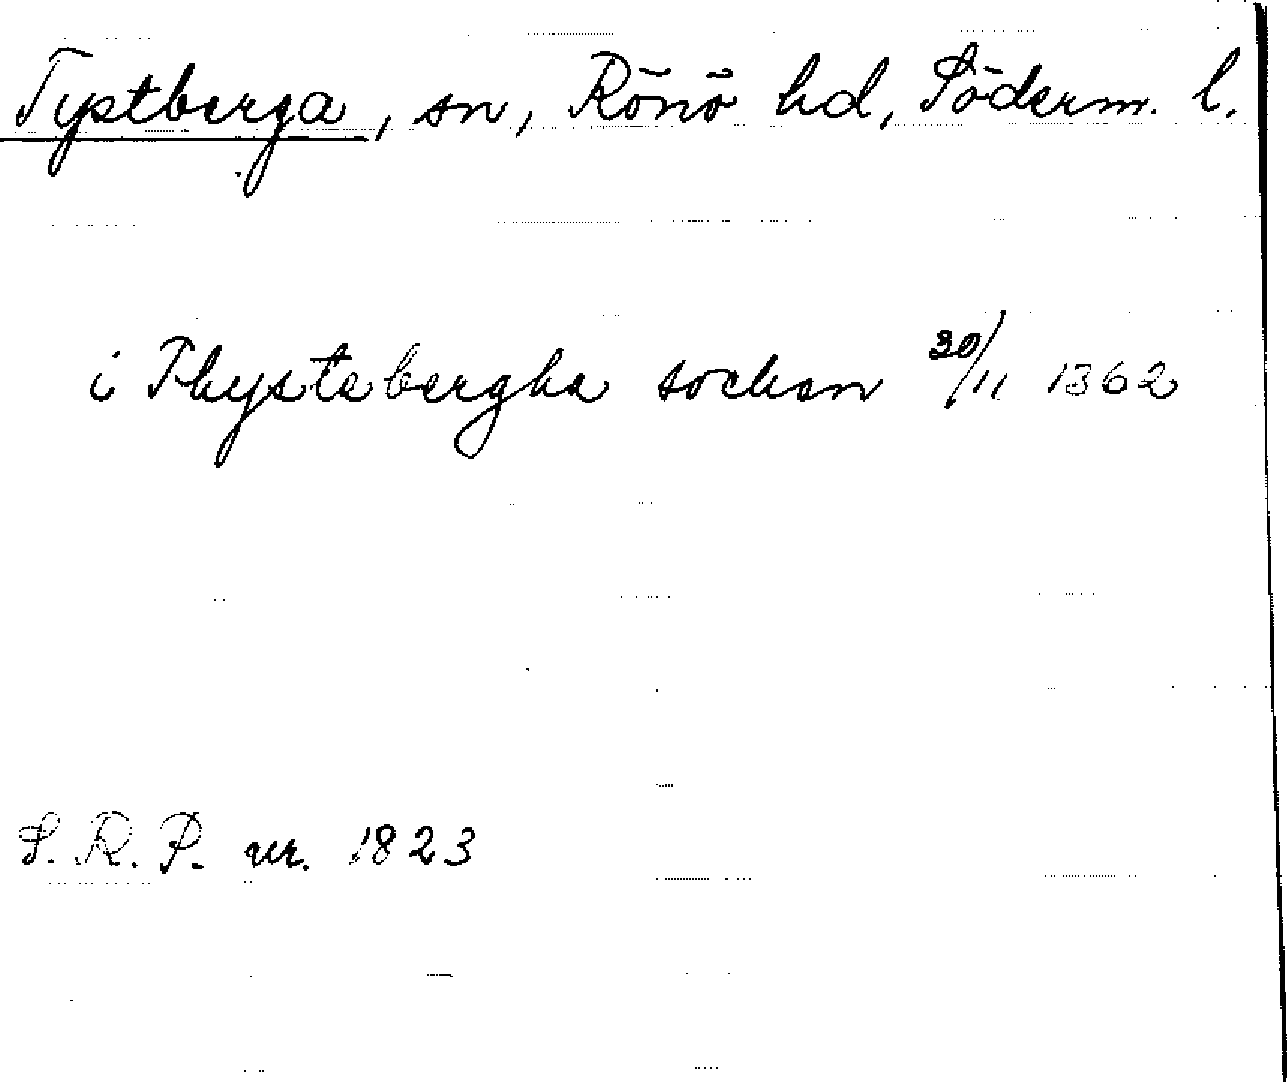 Tystberga, sn, Rönö hd, Söderm. l.
i Thystabergha sochan 30/11 1362
S.R.P. nr. 1823